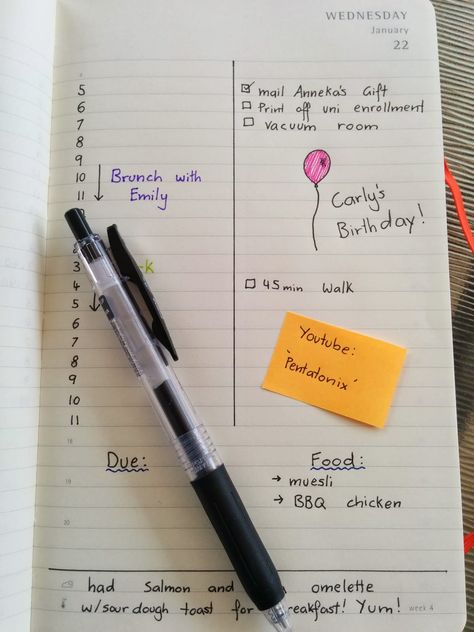 WEDNESDAY
January
22
5
6
7
8
9
10
11
2
3
4
5
6
7
8
9
10
11
Brunch with
Emily
mail Anneka's Gift
Print off uni enrollment
Vacuum room
Carly's
Birthday!
45min walk
Youtube:
'Pentatonix'
18
19
20
Due:
Food:
→ muesli
→ BBQ chicken
had Salmon and omelette
w/sour dough toast for Yum!
week 4